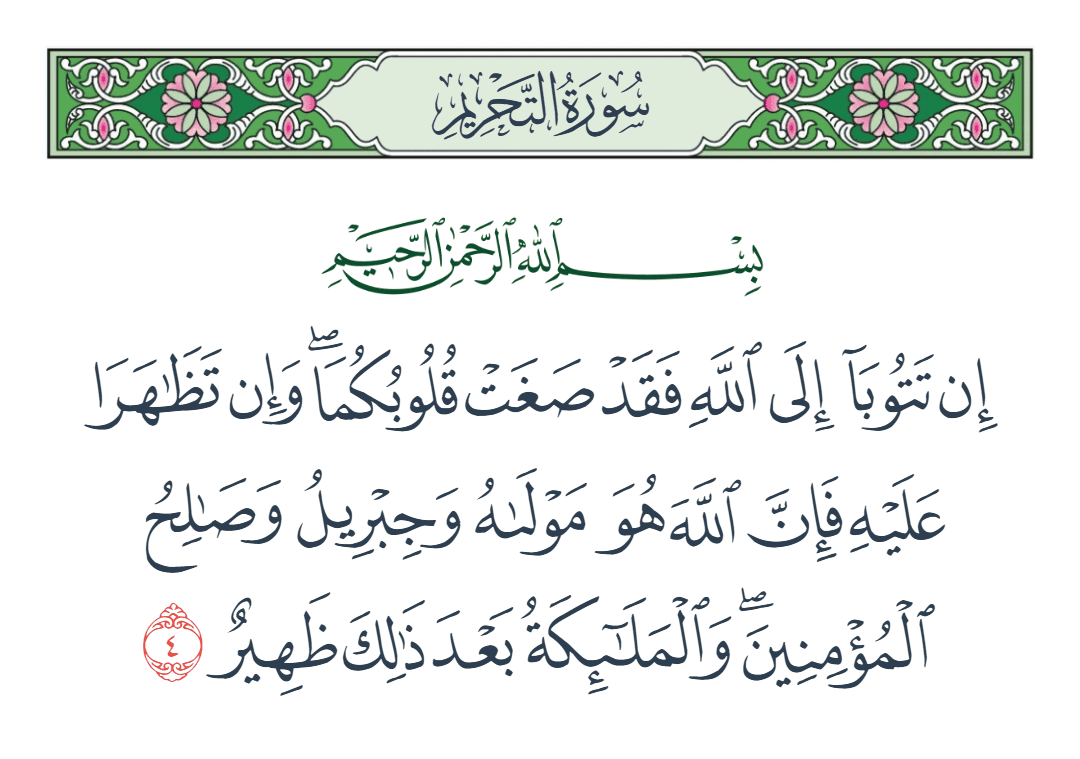 سُورَةُ التَّحْرِيمِ
بِسْمِ ٱللَّهِ ٱلرَّحْمَٰنِ ٱلرَّحِيمِ
إِن تَتُوبَآ إِلَى ٱللَّهِ فَقَدْ صَغَتْ قُلُوبُكُمَا ۖ وَإِن تَظَٰهَرَا
عَلَيْهِ فَإِنَّ ٱللَّهَ هُوَ مَوْلَىٰهُ وَجِبْرِيلُ وَصَٰلِحُ
ٱلْمُؤْمِنِينَ ۖ وَٱلْمَلَٰٓئِكَةُ بَعْدَ ذَٰلِكَ ظَهِيرٌ ٤